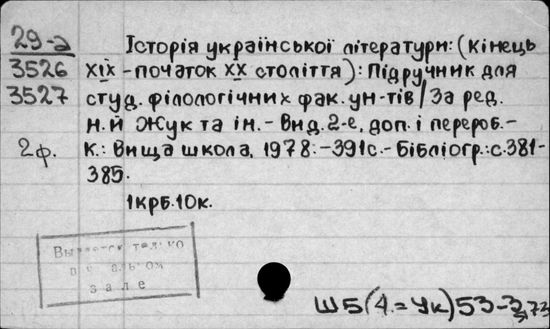 29-а
3526
3527
2ф.
Історія української літератури: (кінець
XIX - початок XX століття): Підручник для
студ. філологічних фак. ун-тів / За ред.
Н.Й Жук та ін. - Вид. 2-е, доп. і перероб. -
К.: Вища школа, 1978. - 391с. - Бібліогр.: с. 381-
385.
1крб. 10к.
только
зале
Ш5(4=Ук)53-3,73